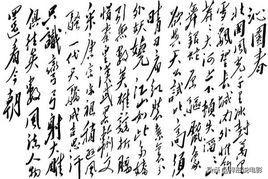 沁园春
北国风光千里冰封万里
雪飘望长城内外惟余莽
莽大河上下顿失滔滔山
舞银蛇原驰腊象欲
与天公试比高须
晴日看红装素裹
分外妖娆江山如此多娇
引无数英雄竞折腰
惜秦皇汉武略输文
采唐宗宋祖稍逊风
骚一代天骄成吉思汗
只识弯弓射大雕
俱往矣数风流人物
还看今朝